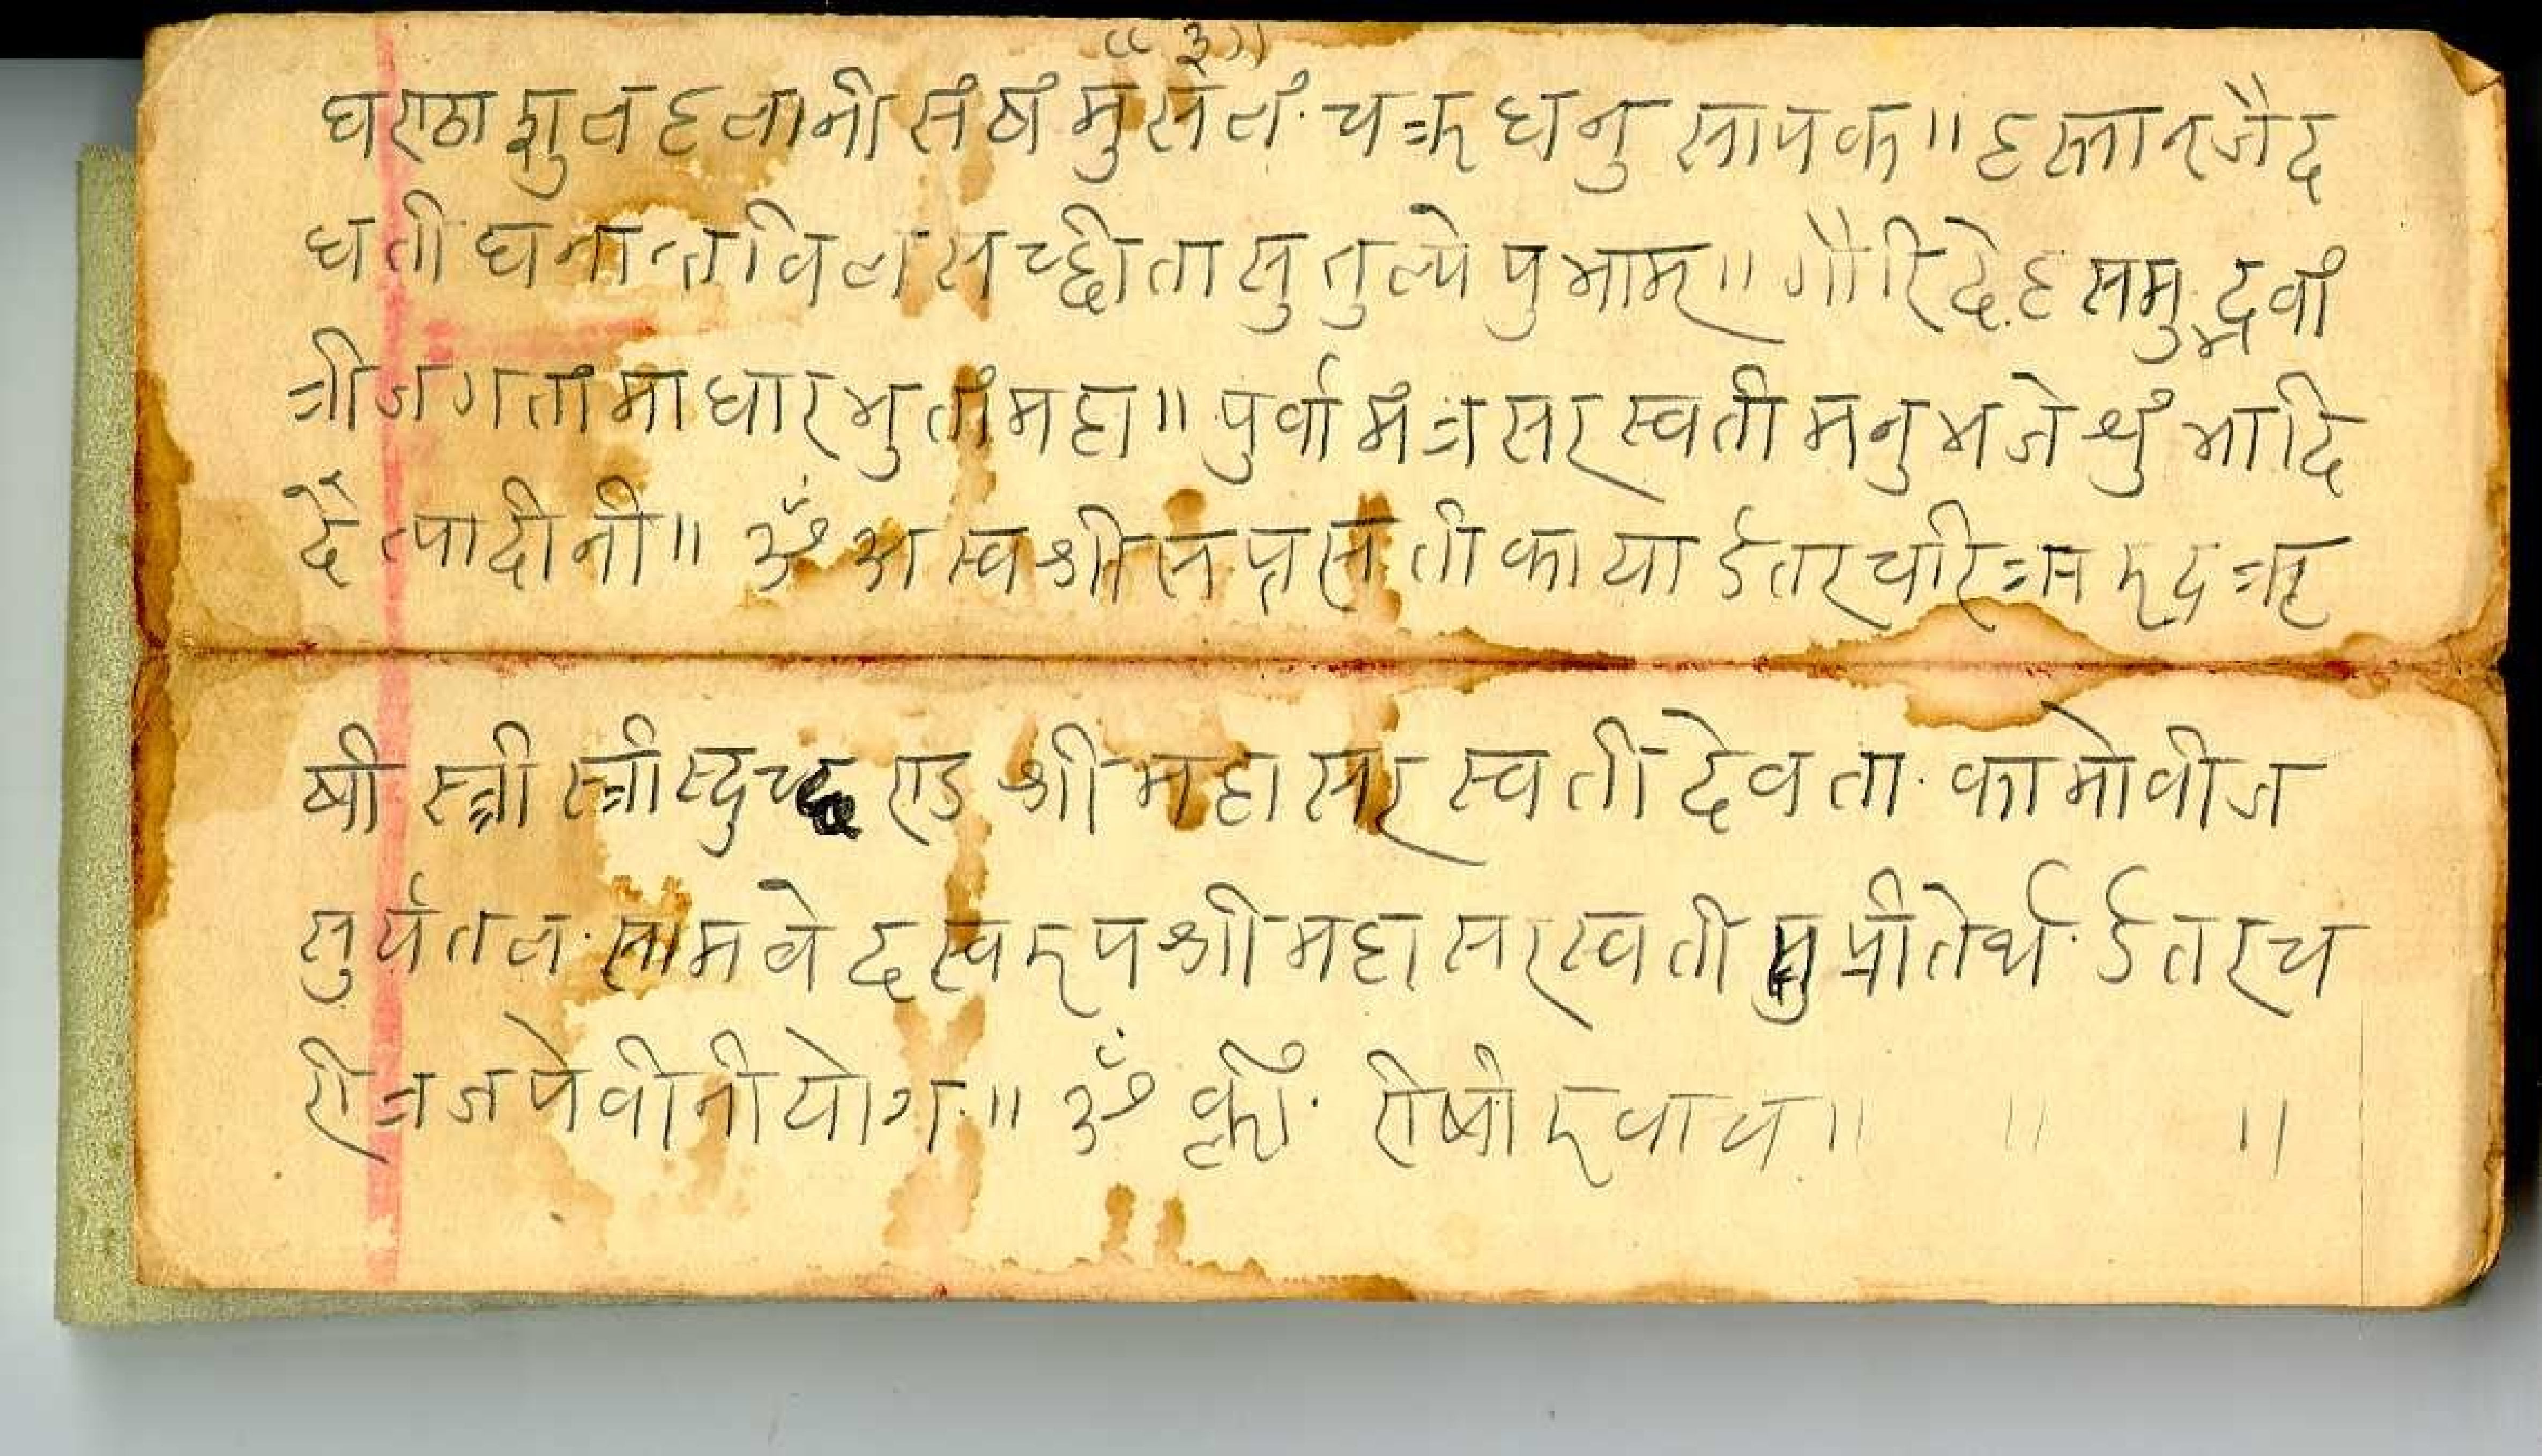 ((३))
घएठा शुल हलानी संषं मुसलं. चक्र धनु सायक॥ हस्तानजैद
धती घनान्त विलसच्छीतासु तुल्ये पुभाम्॥ गौरि देह समुद्भवां
त्रीजगतांमाधार भुतांमहा॥ पुर्वा मंत्र सरस्वती मनुभजे शुंभादि
दैत्यादीनी॥ ॐ अस्व श्री सप्तसती काया ईतर चरित्रस रुद्र ऋ
षी स्त्री स्त्री स्दुच्छ एड श्री महा सरस्वती देवता. कामोवीज
सुर्यतल. सामवेद स्वरुप श्री महा सरस्वती प्रीतेर्थ. ईतरच
रीत्र जपे वीनीयोग.॥ ॐ क्लीं. रीषी रुवाच॥ ॥ ॥